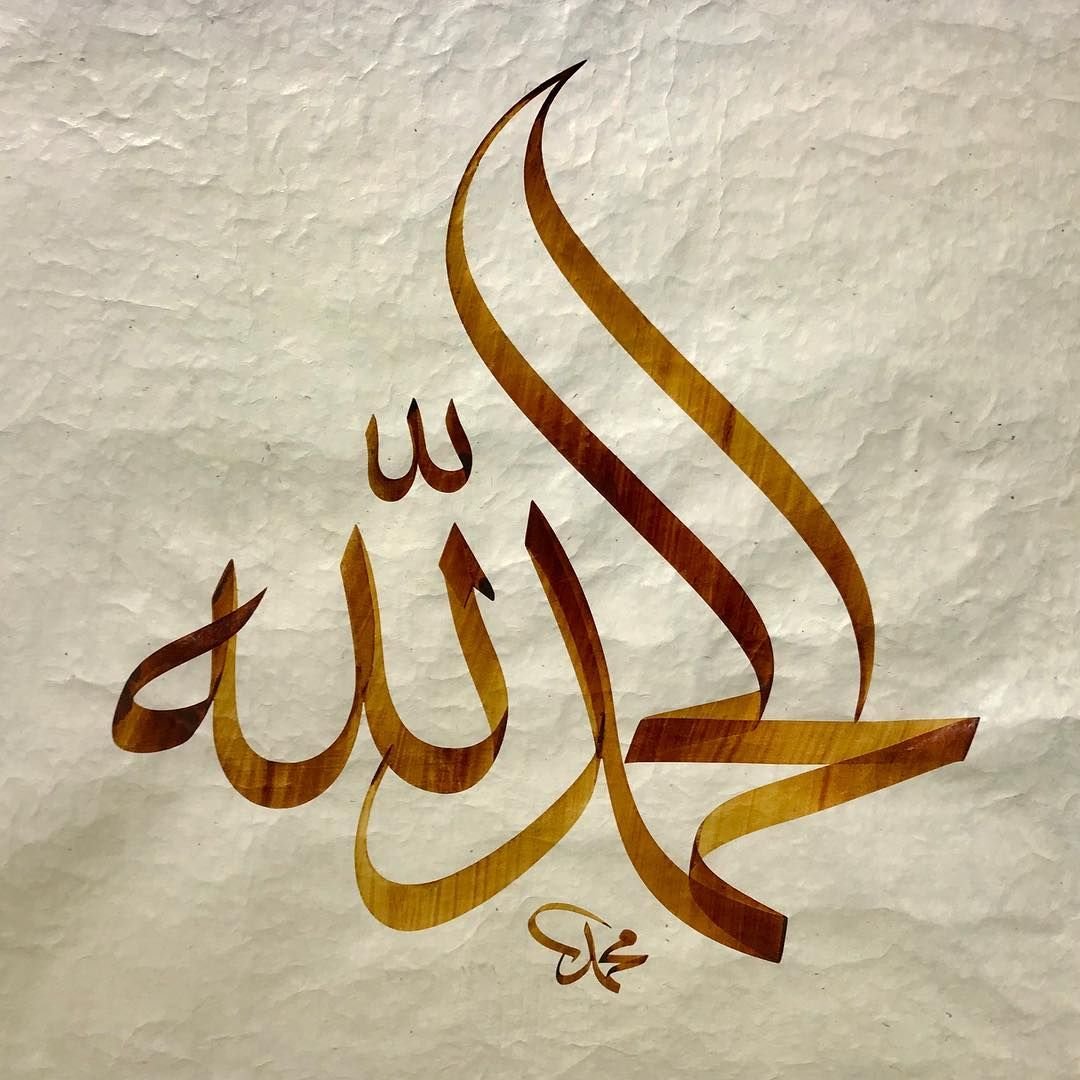 الحمد لله
محمد